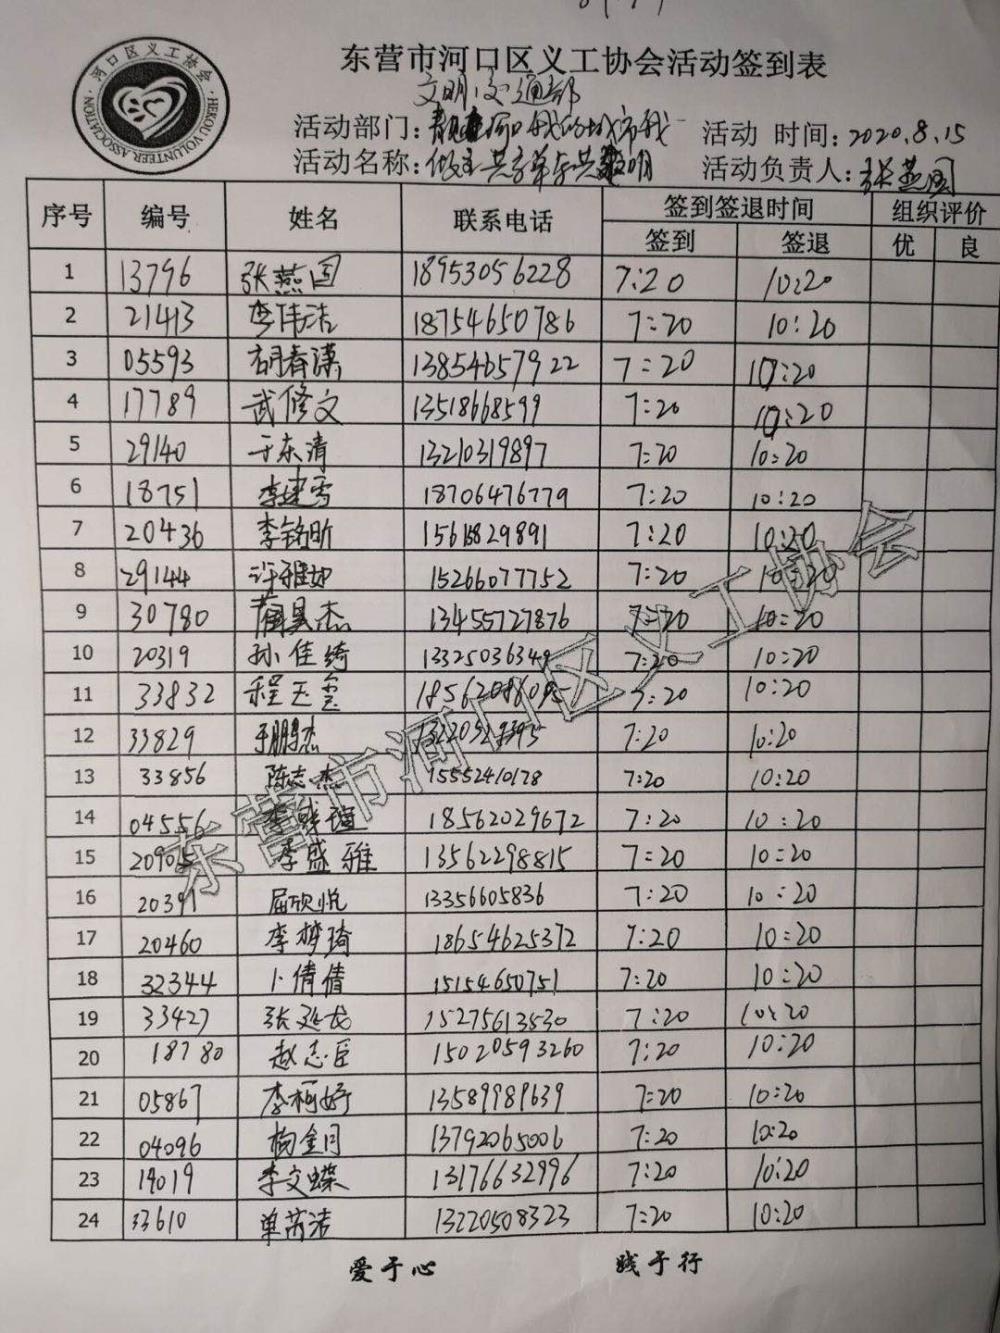 河口区义工协会
HEKOU VOLUNTEER ASSOCIATION
东营市河口区义工协会活动签到表
文明交通部
活动部门: 河口我的城市我 活动 时间: 2020.8.15
活动名称: 做主共享单车共 明 活动负责人: 张燕国
序号 编号 姓名 联系电话 签到签退时间 组织评价
签到 签退 优 良
1 13796 张燕国 18953056228 7:20 10:20
2 21413 李伟洁 18754650786 7:20 10:20
3 05593 胡春漢 13854657922 7:20 10:20
4 17789 武修文 13518668599 7:20 10:20
5 29140 于东清 13210319897 7:20 10:20
6 18751 李建雪 18706476779 7:20 10:20
7 20436 李铭昕 15615829891 7:20 10:20
8 29144 许雅如 15266077752 7:20 10:20
9 30780 昊杰 13455727876 7:20 10:20
10 20319 孙佳绮 1332503634 7:20 10:20
11 33832 程玉玺 7:20 10:20
12 33829 于鹏杰 7:20 10:20
13 33856 陈志杰 15552410178 7:20 10:20
14 04556 李 18562029672 7:20 10:20
15 20905 李盛雅 13562298815 7:20 10:20
16 20391 屈欣悦 13356605836 7:20 10:20
17 20460 李梦琦 18654625372 7:20 10:20
18 32344 卜倩倩 15154650751 7:20 10:20
19 33427 张延龙 15275613530 7:20 10:20
20 18780 赵志臣 15020593260 7:20 10:20
21 05867 李柯妤 13589989639 7:20 10:20
22 04096 杨金月 13792065006 7:20 10:20
23 19019 李文蝶 13176632996 7:20 10:20
24 33610 单芮洁 13220508323 7:20 10:20
东营市河口区义工协会
爱于心 践于行